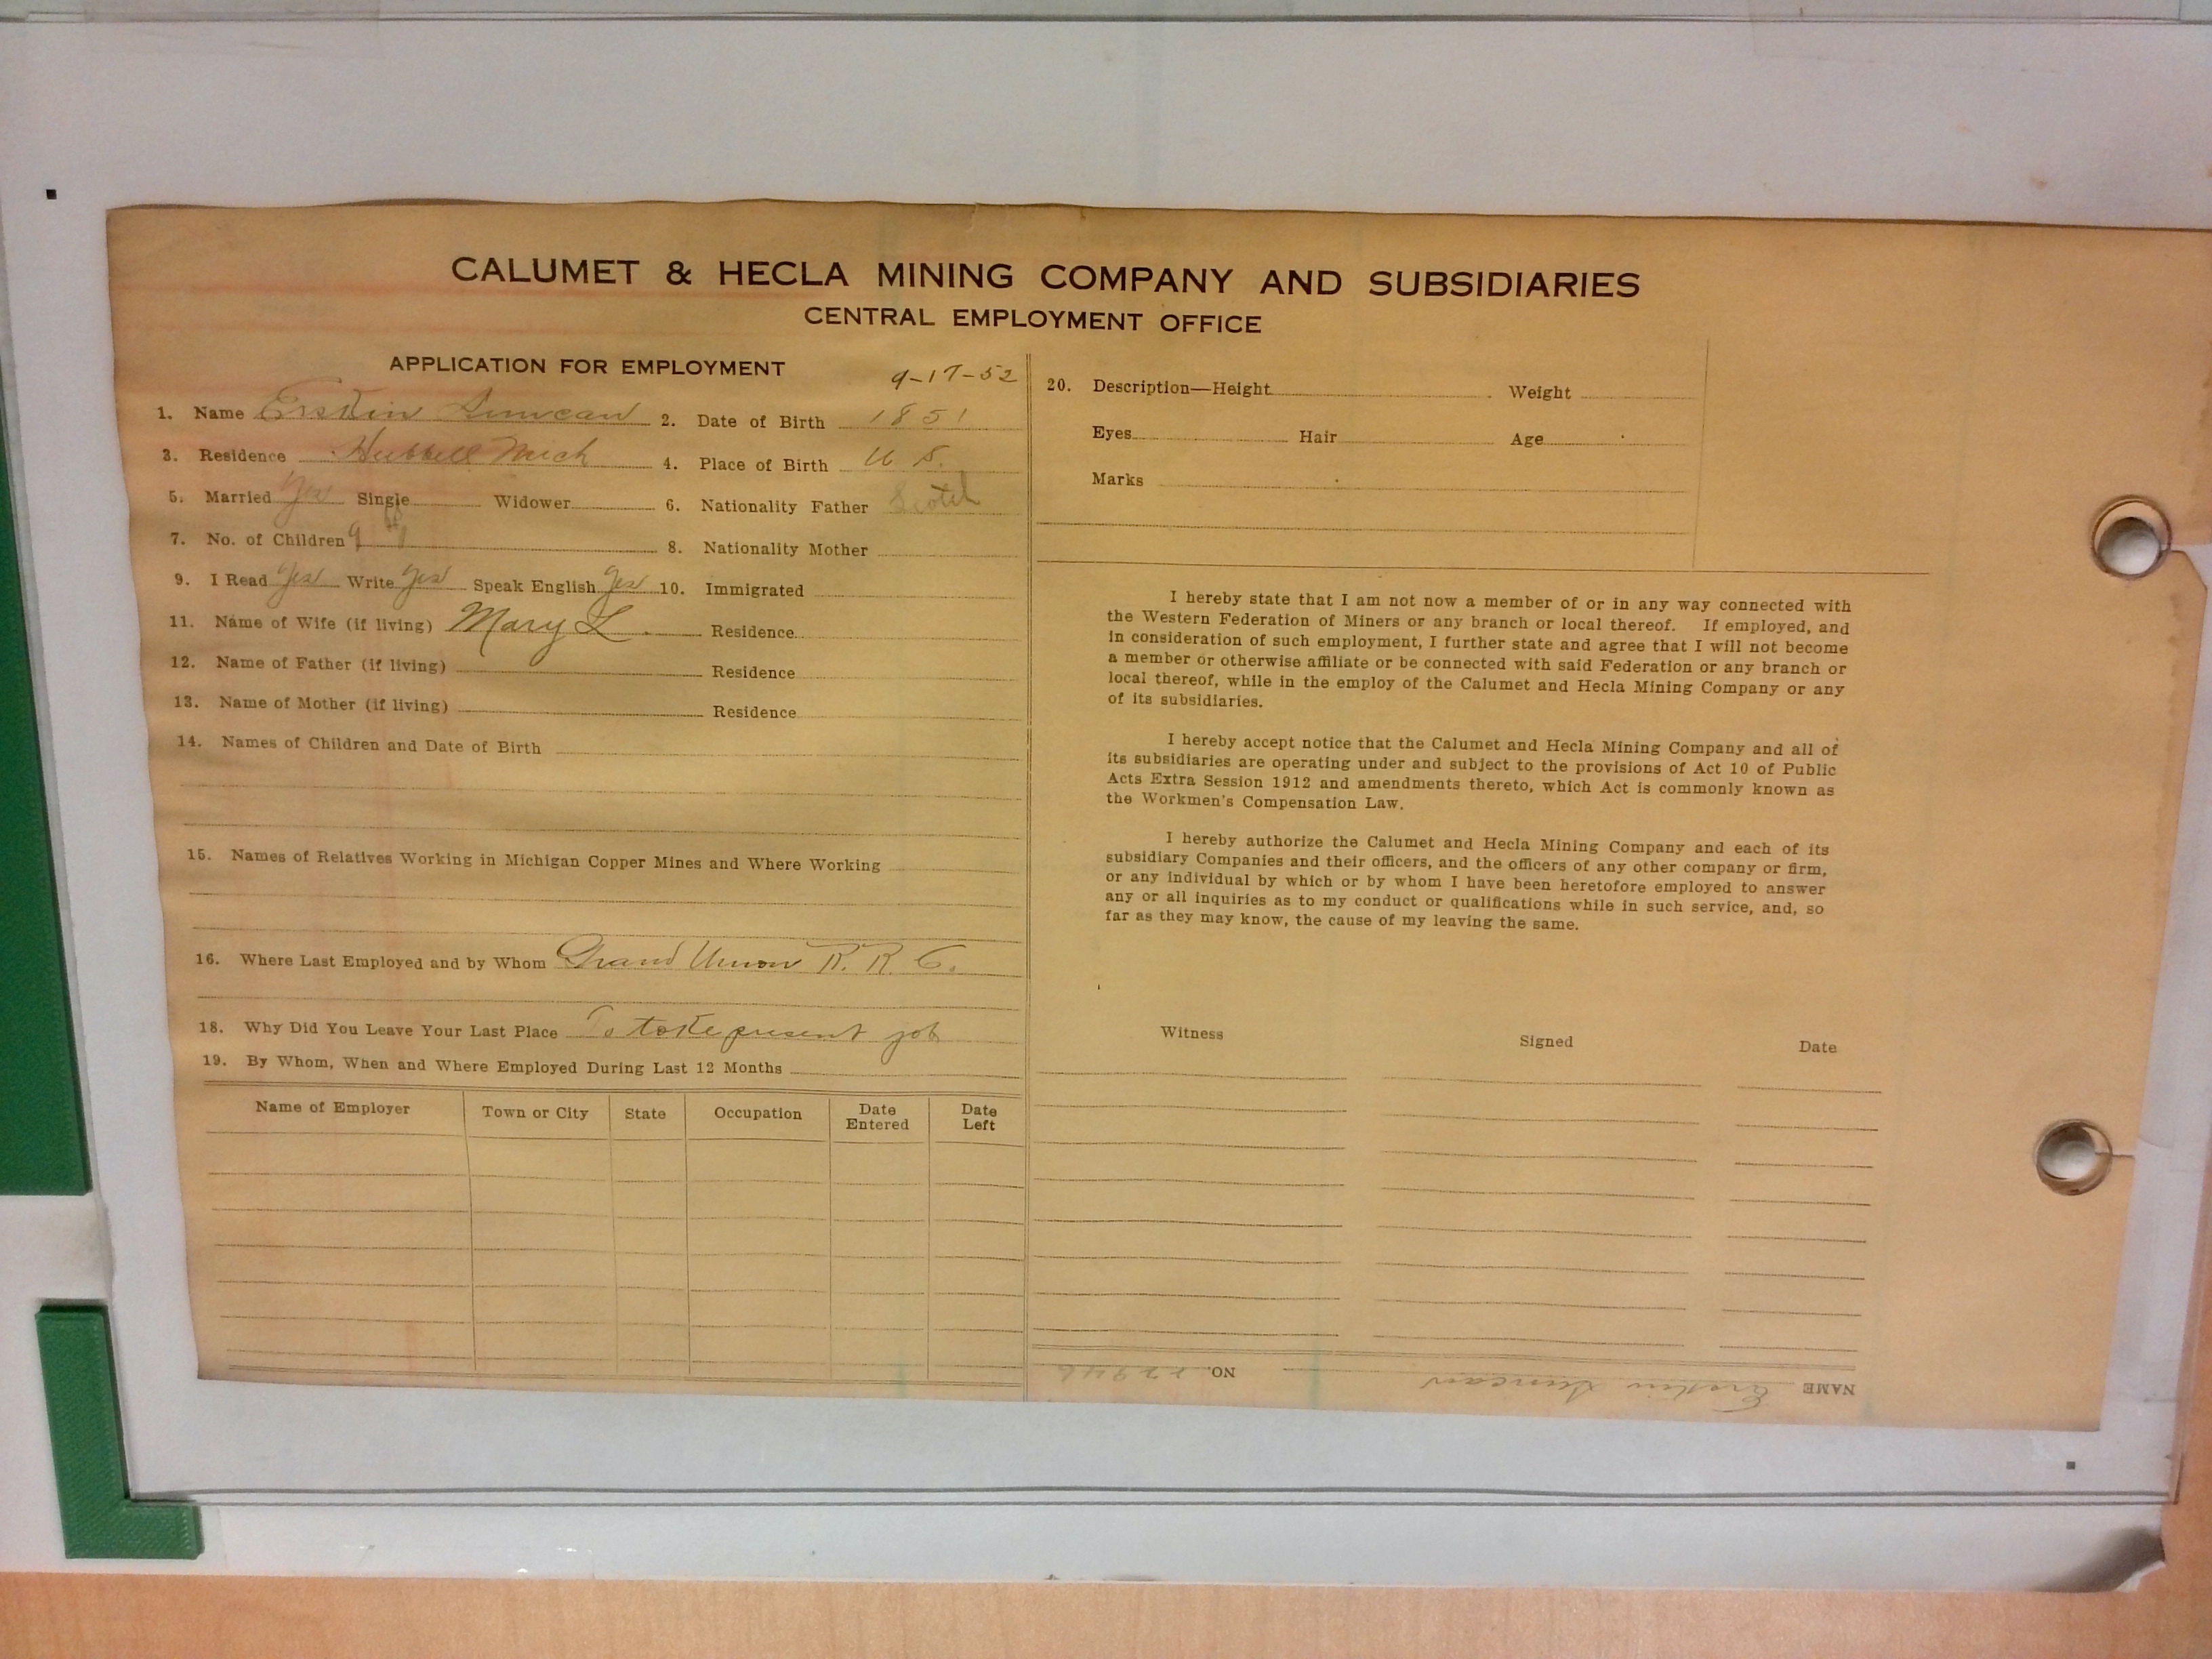 CALUMET & HECLA MINING COMPANY AND SUBSIDIARIES
CENTRAL EMPLOYMENT OFFICE
APPLICATION FOR EMPLOYMENT
9-17-52
1. Name Erskin Duncan 2. Date of Birth 1851
3. Residence Hubbell Mich 4. Place of Birth U S.
5. Married Yes Single Widower 6. Nationality Father Scotch
7. No. of Children 9 8. Nationality Mother
9. I Read Yes Write Yes Speak English Yes 10. Immigrated
11. Name of Wife (if living) Mary L. Residence
12. Name of Father (if living) Residence
13. Name of Mother (if living) Residence
14. Names of Children and Date of Birth
15. Names of Relatives Working in Michigan Copper Mines and Where Working
16. Where Last Employed and by Whom Grand Union R. R. C.
18. Why Did You Leave Your Last Place To take present job
19. By Whom, When and Where Employed During Last 12 Months
Name of Employer Town or City State Occupation Date Entered Date Left
20. Description—Height Weight
Eyes Hair Age
Marks
I hereby state that I am not now a member of or in any way connected with
the Western Federation of Miners or any branch or local thereof. If employed, and
in consideration of such employment, I further state and agree that I will not become
a member or otherwise affiliate or be connected with said Federation or any branch or
local thereof, while in the employ of the Calumet and Hecla Mining Company or any
of its subsidiaries.
I hereby accept notice that the Calumet and Hecla Mining Company and all of
its subsidiaries are operating under and subject to the provisions of Act 10 of Public
Acts Extra Session 1912 and amendments thereto, which Act is commonly known as
the Workmen's Compensation Law.
I hereby authorize the Calumet and Hecla Mining Company and each of its
subsidiary Companies and their officers, and the officers of any other company or firm,
or any individual by which or by whom I have been heretofore employed to answer
any or all inquiries as to my conduct or qualifications while in such service, and, so
far as they may know, the cause of my leaving the same.
Witness Signed Date
NAME Erskin Duncan NO. 22946